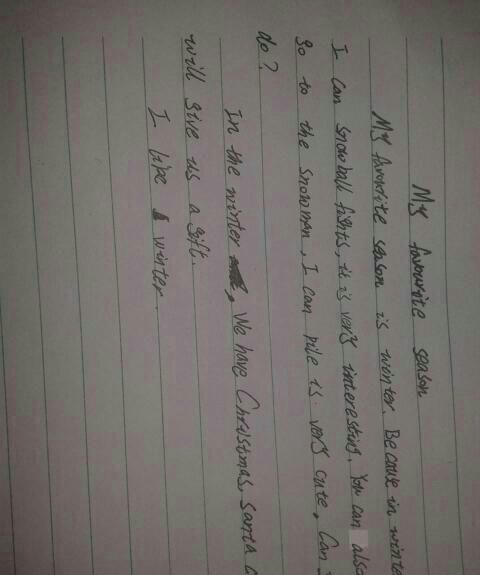 My favourite season
My favorite season is winter. Because in winte
I can snowball fights, it is very interesting. You can also
go to the snowman, I can pile is very cute, Can
do?
In the winter, We have Christmas, santa
will give us a gift.
I like winter.